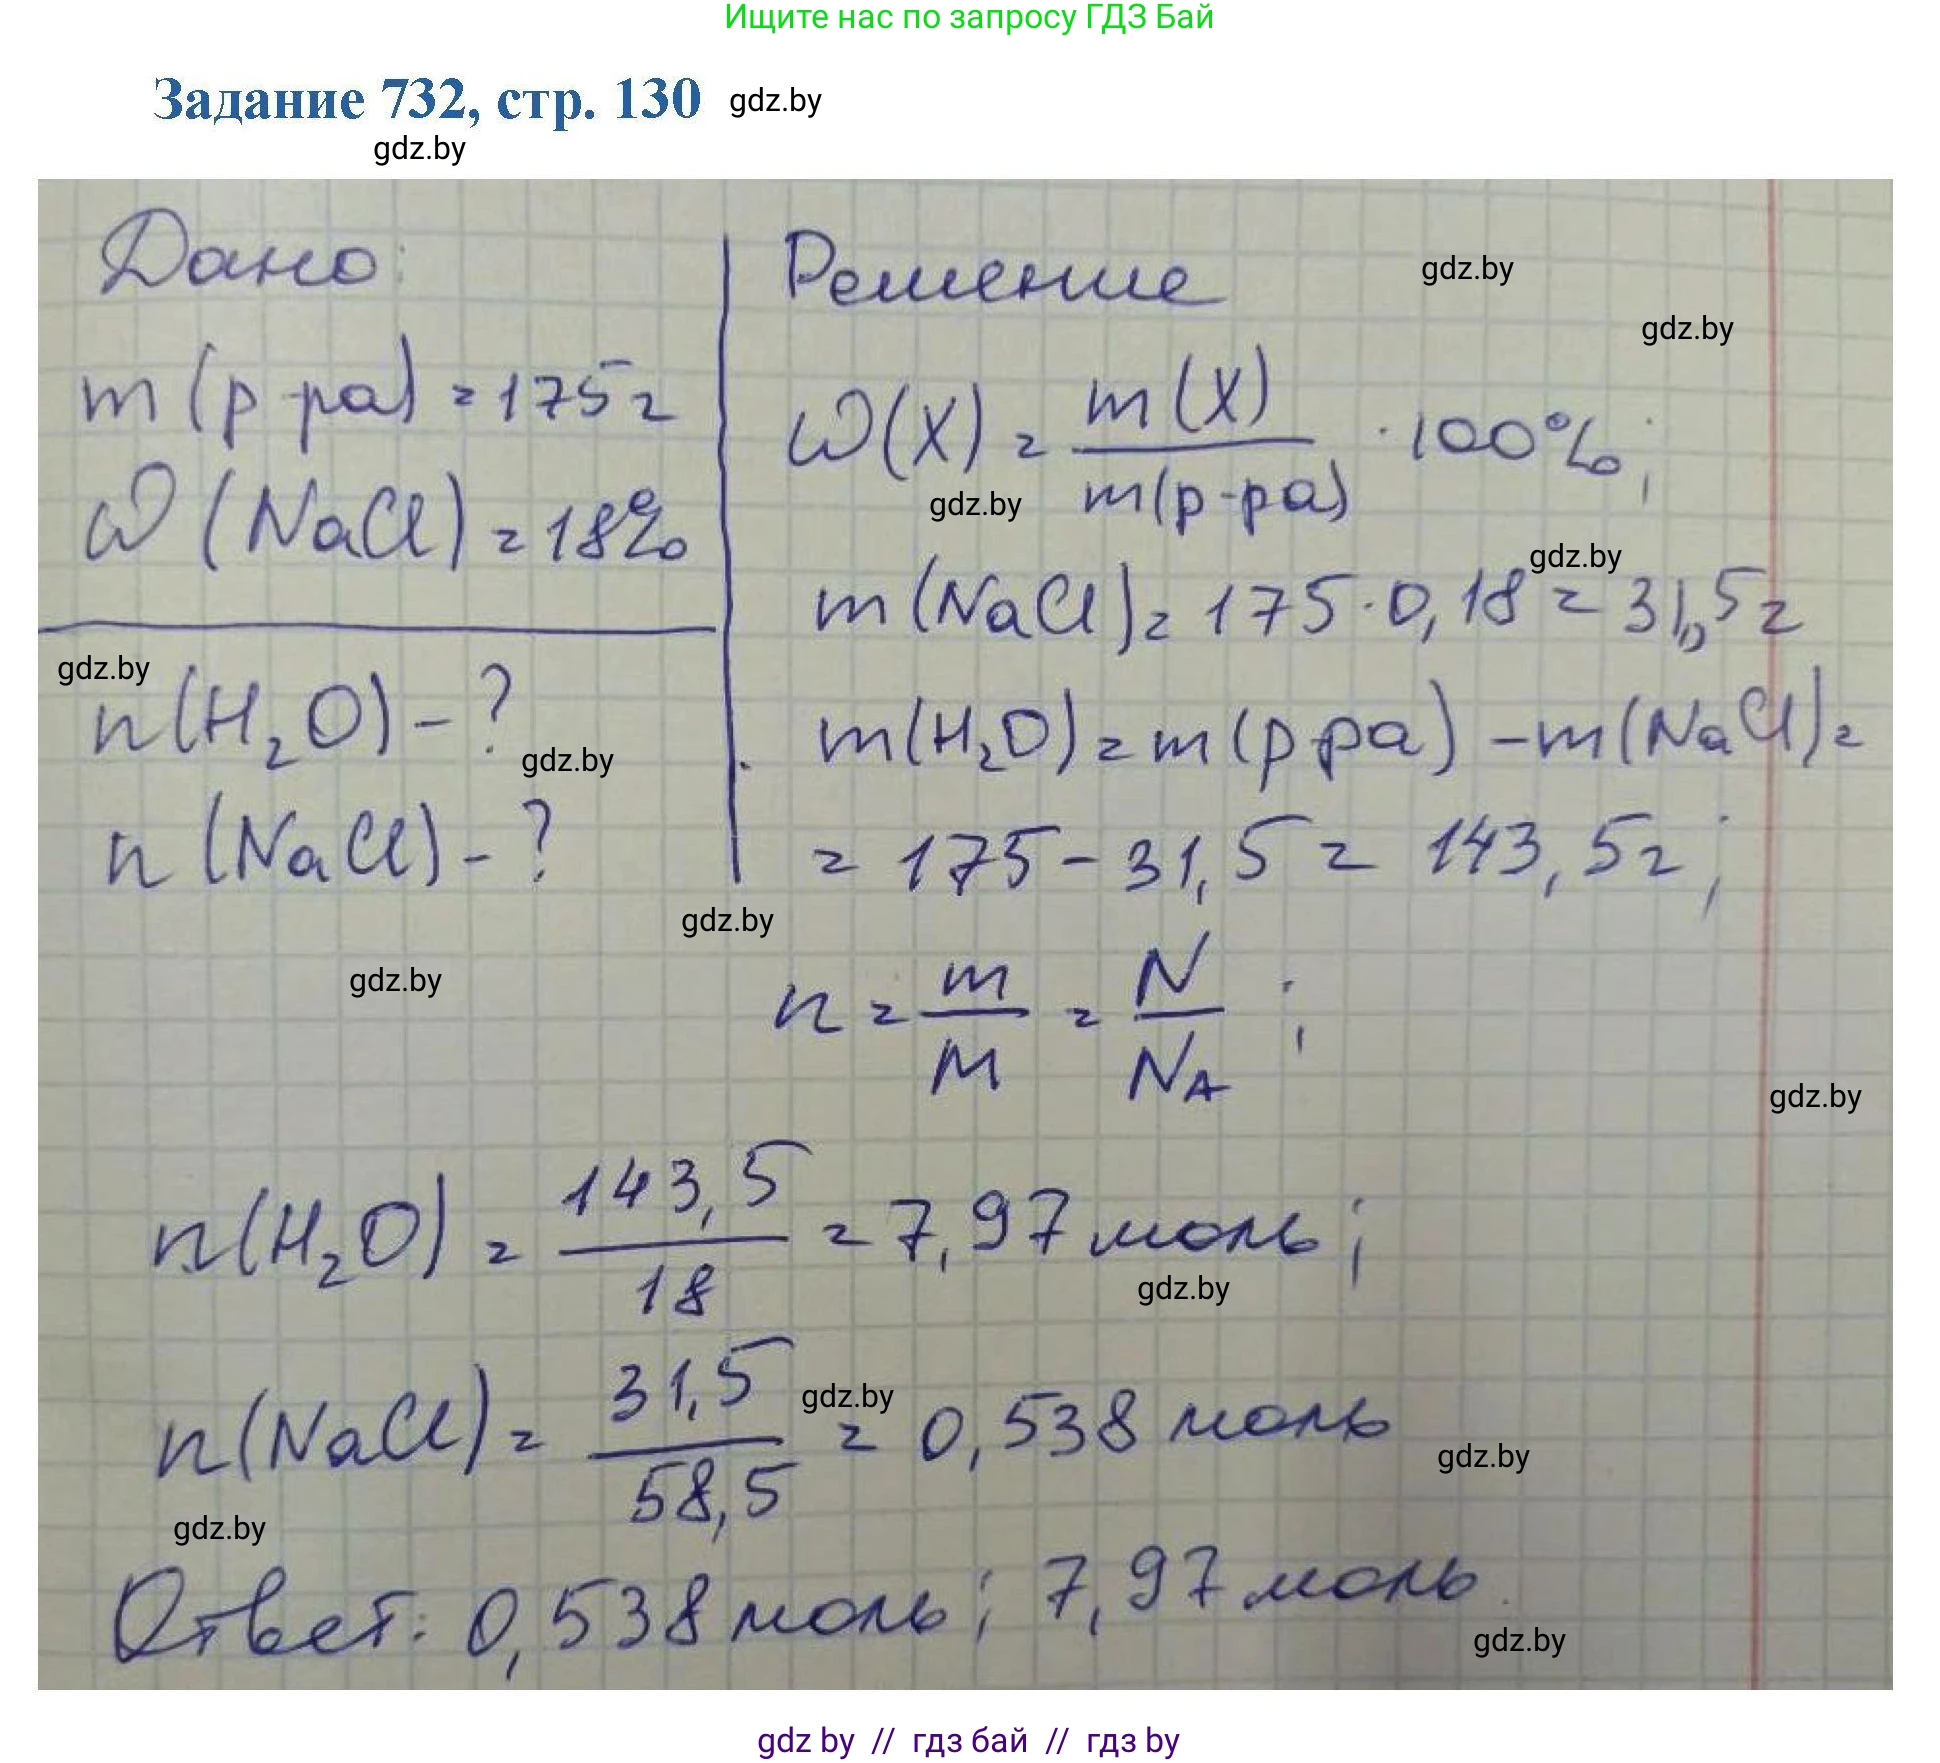 Ищите нас по запросу ГДЗ Бай
Задание 732, стр. 130 gdz.by
gdz.by
Дано:
m (р-ра) = 175 г
ω (NaCl) = 18%
gdz.by
n(H₂O) - ?
gdz.by
n (NaCl) - ?
Решение
gdz.by
gdz.by
ω(X) = m(X) / m(р-ра) · 100%;
gdz.by
gdz.by
m(NaCl) = 175·0,18 = 31,5 г
m(H₂O) = m(р-ра) - m(NaCl) =
= 175 - 31,5 = 143,5 г;
gdz.by
gdz.by
n = m / M = N / Nᴀ ;
gdz.by
n(H₂O) = 143,5 / 18 = 7,97 моль;
gdz.by
n(NaCl) = 31,5 / 58,5 = 0,538 моль
gdz.by
gdz.by
gdz.by
Ответ: 0,538 моль; 7,97 моль.
gdz.by
gdz by // гдз бай // гдз by